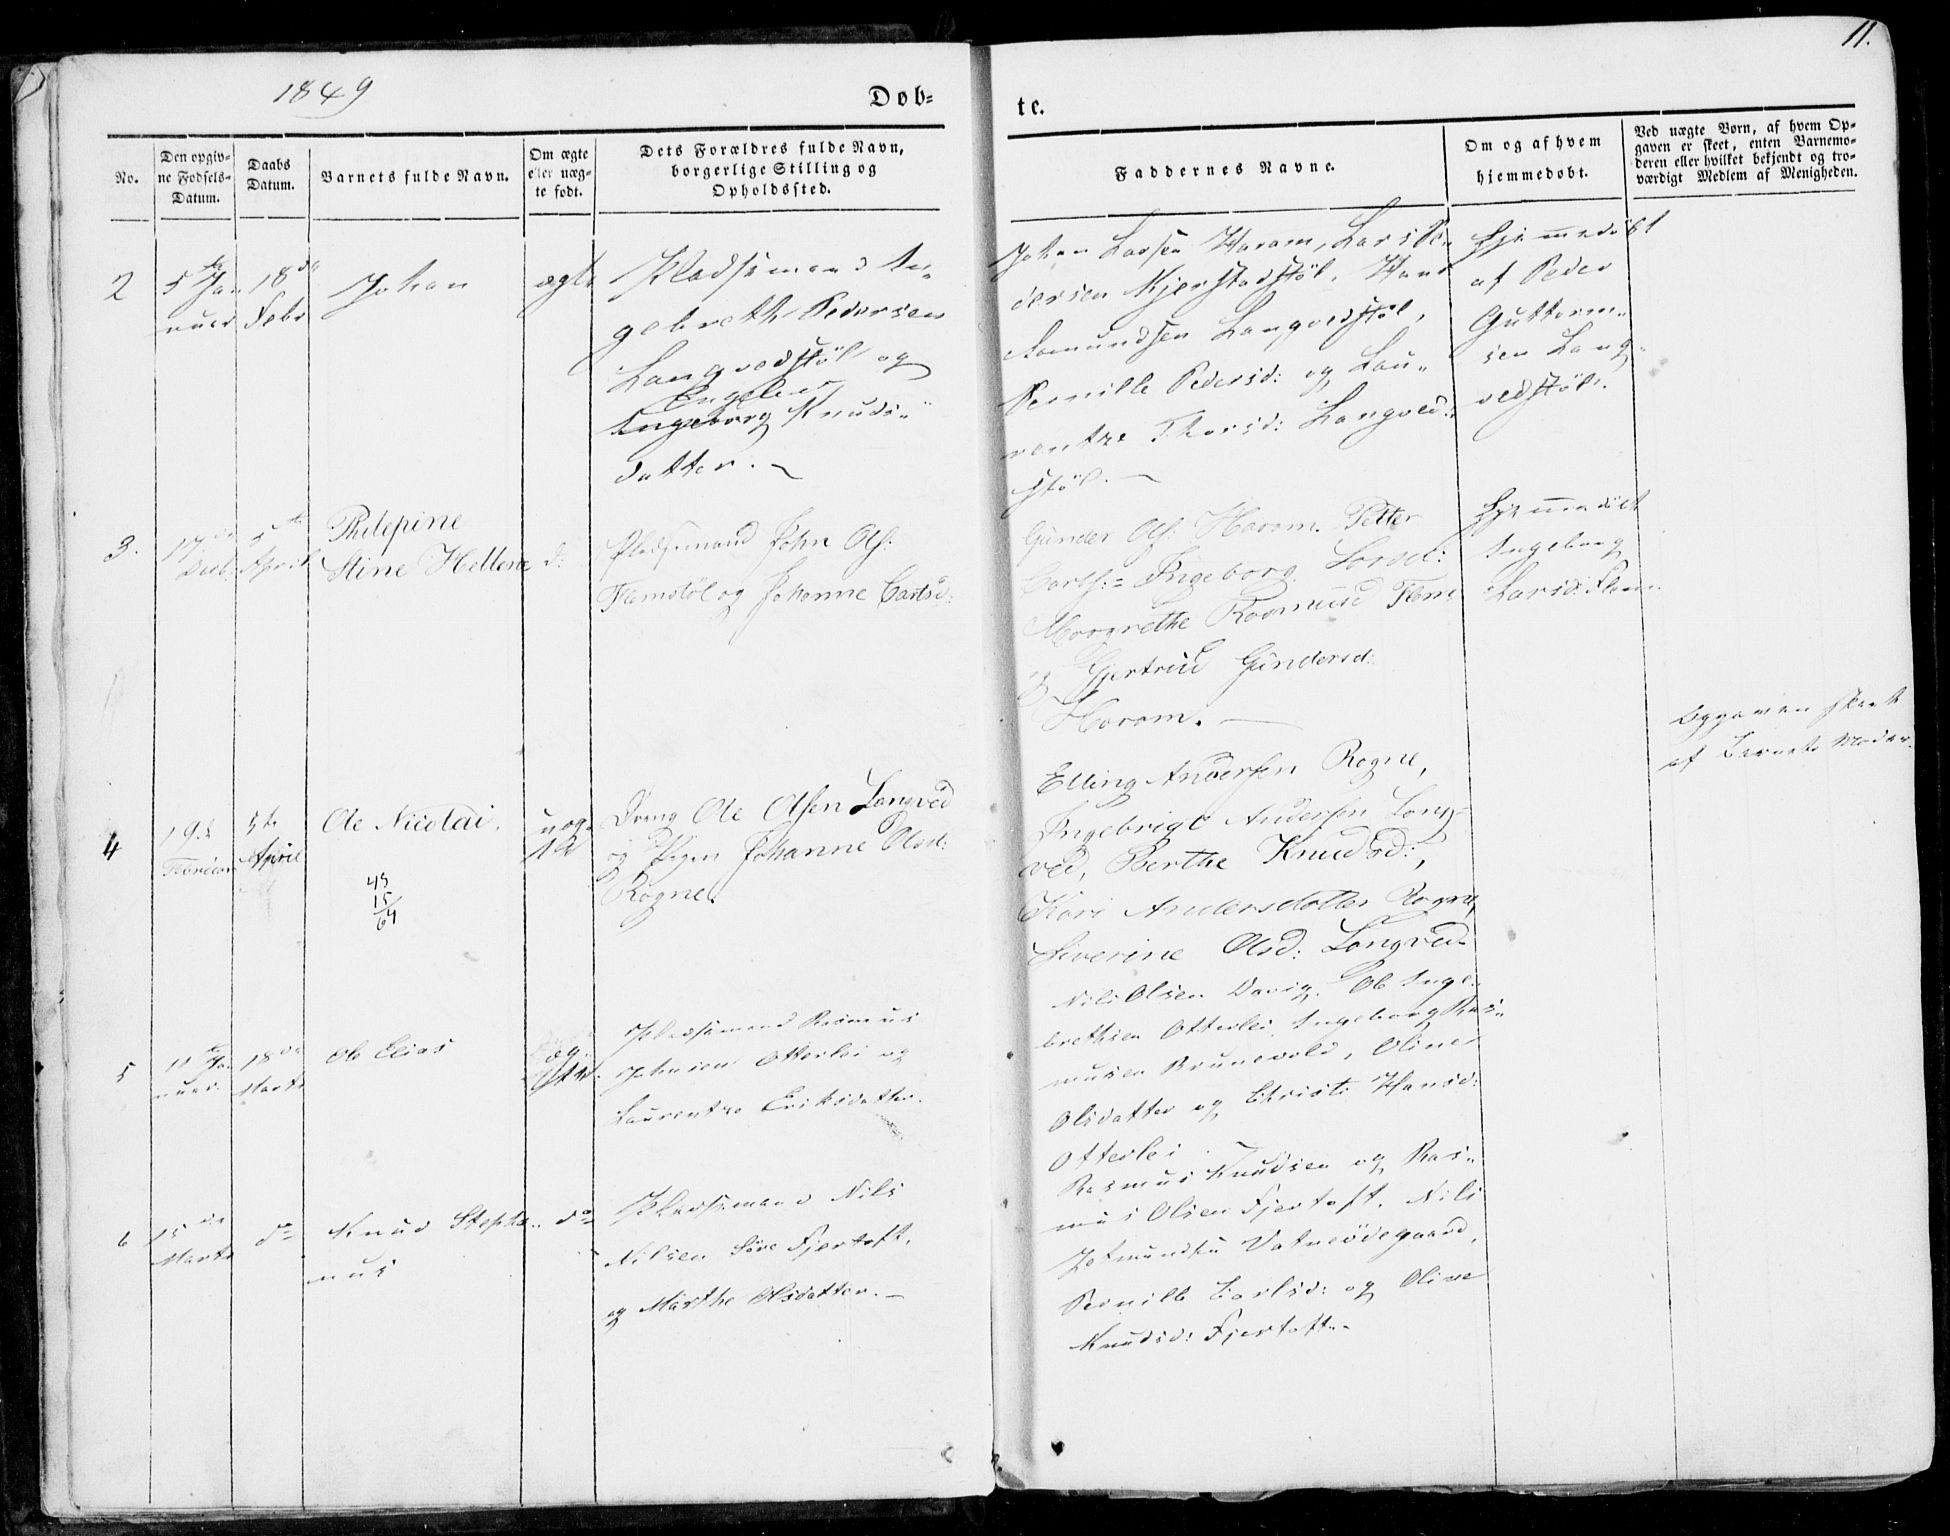 1849
Døb=
te.
11.
No.
Den opgiv=
ne Fødsels=
Datum.
Daabs
Datum.
Barnets fulde Navn.
Om ægte
eller uæg=
te født.
Dets Forældres fulde Navn,
borgerlige Stilling og
Opholdssted.
Faddernes Navne.
Om og af hvem
hjemmedøbt.
Ved uægte Børn, af hvem Op=
gaven er skeet, enten Barnemo=
deren eller hvilket bekjendt og tro=
værdigt Medlem af Menigheden.
2
5te Ja
nuar
18de
Febr
Johan
ægte
Pladsemand In=
gebreth Pedersen
Langvedstøl og
Ingeborg Knuds=
datter.
Johan Larsen Haram, Lars Pe=
dersen Kjerstadstøl, Hans
Aamundsen Langvedstøl,
Pernille Pedersd: og Lau=
rentze Thorsd: Langved=
støl.
Hjemmedöbt
af Peder
Guttorm=
sen Lang=
vedstøl.
3.
17de
Decb.
5te
April
Philepine
Stine Hellene
d:
Pladsemand John Ols:
Flemstøl og Johanne Carlsd:
Gunder Ols: Haram. Petter
Carls:= Ingeborg Larsd:
Margrethe Rasmusd Flem
og Gjertrud Gundersd:
Haram.
Hjemmedöbt
Ingeborg
Larsd: Flem.
4
19de
Februar
5te
April
Ole Nicolai.
49
15
64
uæg=
te
Dreng Ole Olsen Langved
og Pigen Johanne Olsd:
Rogne.
Elling Andersen Rogne,
Ingebrigt Andersen Lang=
ved, Berthe Knudsd:,
Kari Andersdatter Rogne,
Siverine Olsd: Langved.
Opgaven skeet
af Barnets Moder.
5
Ja
nuar
18de
Marts
Ole Elias
æg=
te.
Pladsemand Rasmus
Johnsen Otterlei og
Laurentze Eriksdatter.
Nils Olsen Davig. Ole Inge=
brethsen Otterlei, Ingeborg Ras=
musen Brunevold, Oline
Olsdatter og Christi Hansd:
Otterlei
6
25de
Marts
do
Knud Stepha=
nus
do
Pladsemand Nils
Nilsen Søre Fjertoft.
og Marthe Olsdatter.
Rasmus Knudsen og Ras=
mus Olsen Fjertoft. Nils
Jetmundsen Vatneödegaard,
Pernille Carlsd: og Oline
Knudsd: Fjertoft.